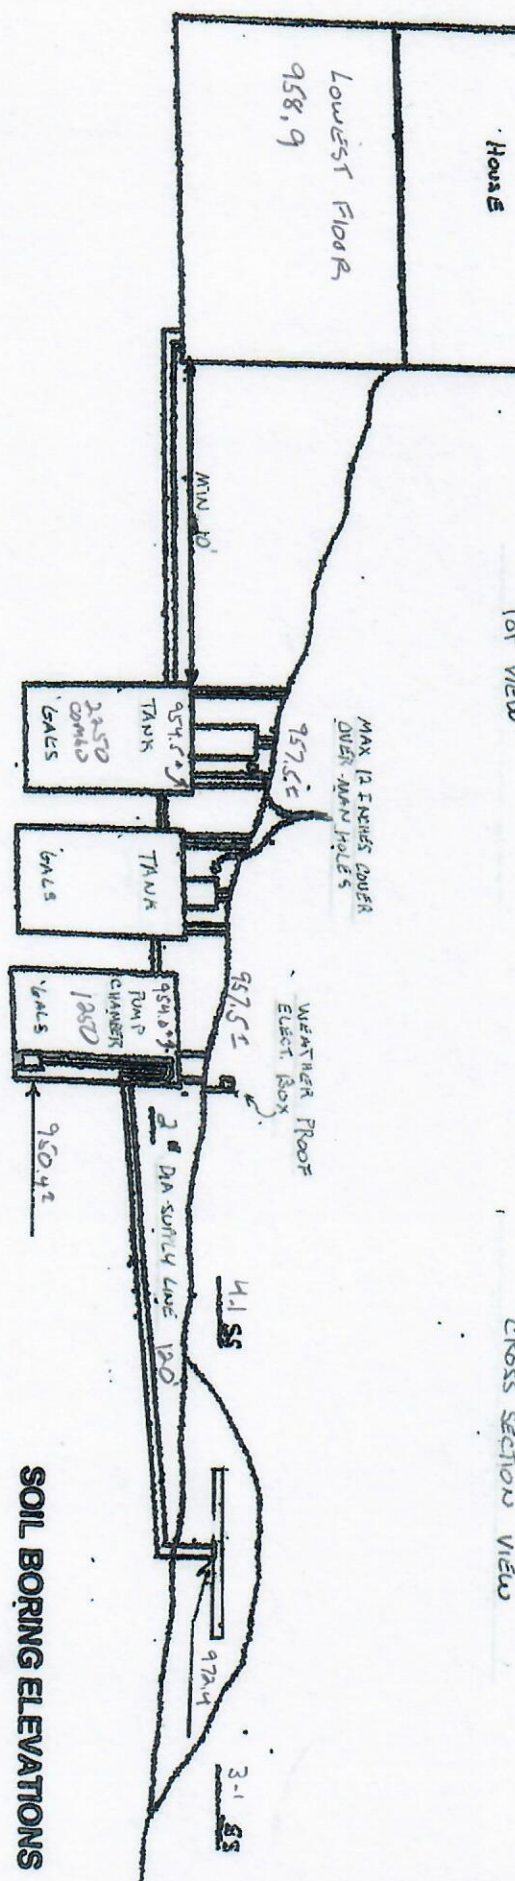 HOUSE
LOWEST FLOOR
958.9
TOP VIEW
CROSS SECTION VIEW
MIN 10'
MAX 12 INCHES COVER
OVER MANHOLES
957.5±
954.5±
TANK
2250
COMBO
GALS
TANK
GALS
WEATHER PROOF
ELECT. BOX
957.5±
954.0±
PUMP
CHAMBER
1250
GALS
950.4±
2" DIA SUPPLY LINE 120'
4.1 SS
972.4
3-1 SS
SOIL BORING ELEVATIONS